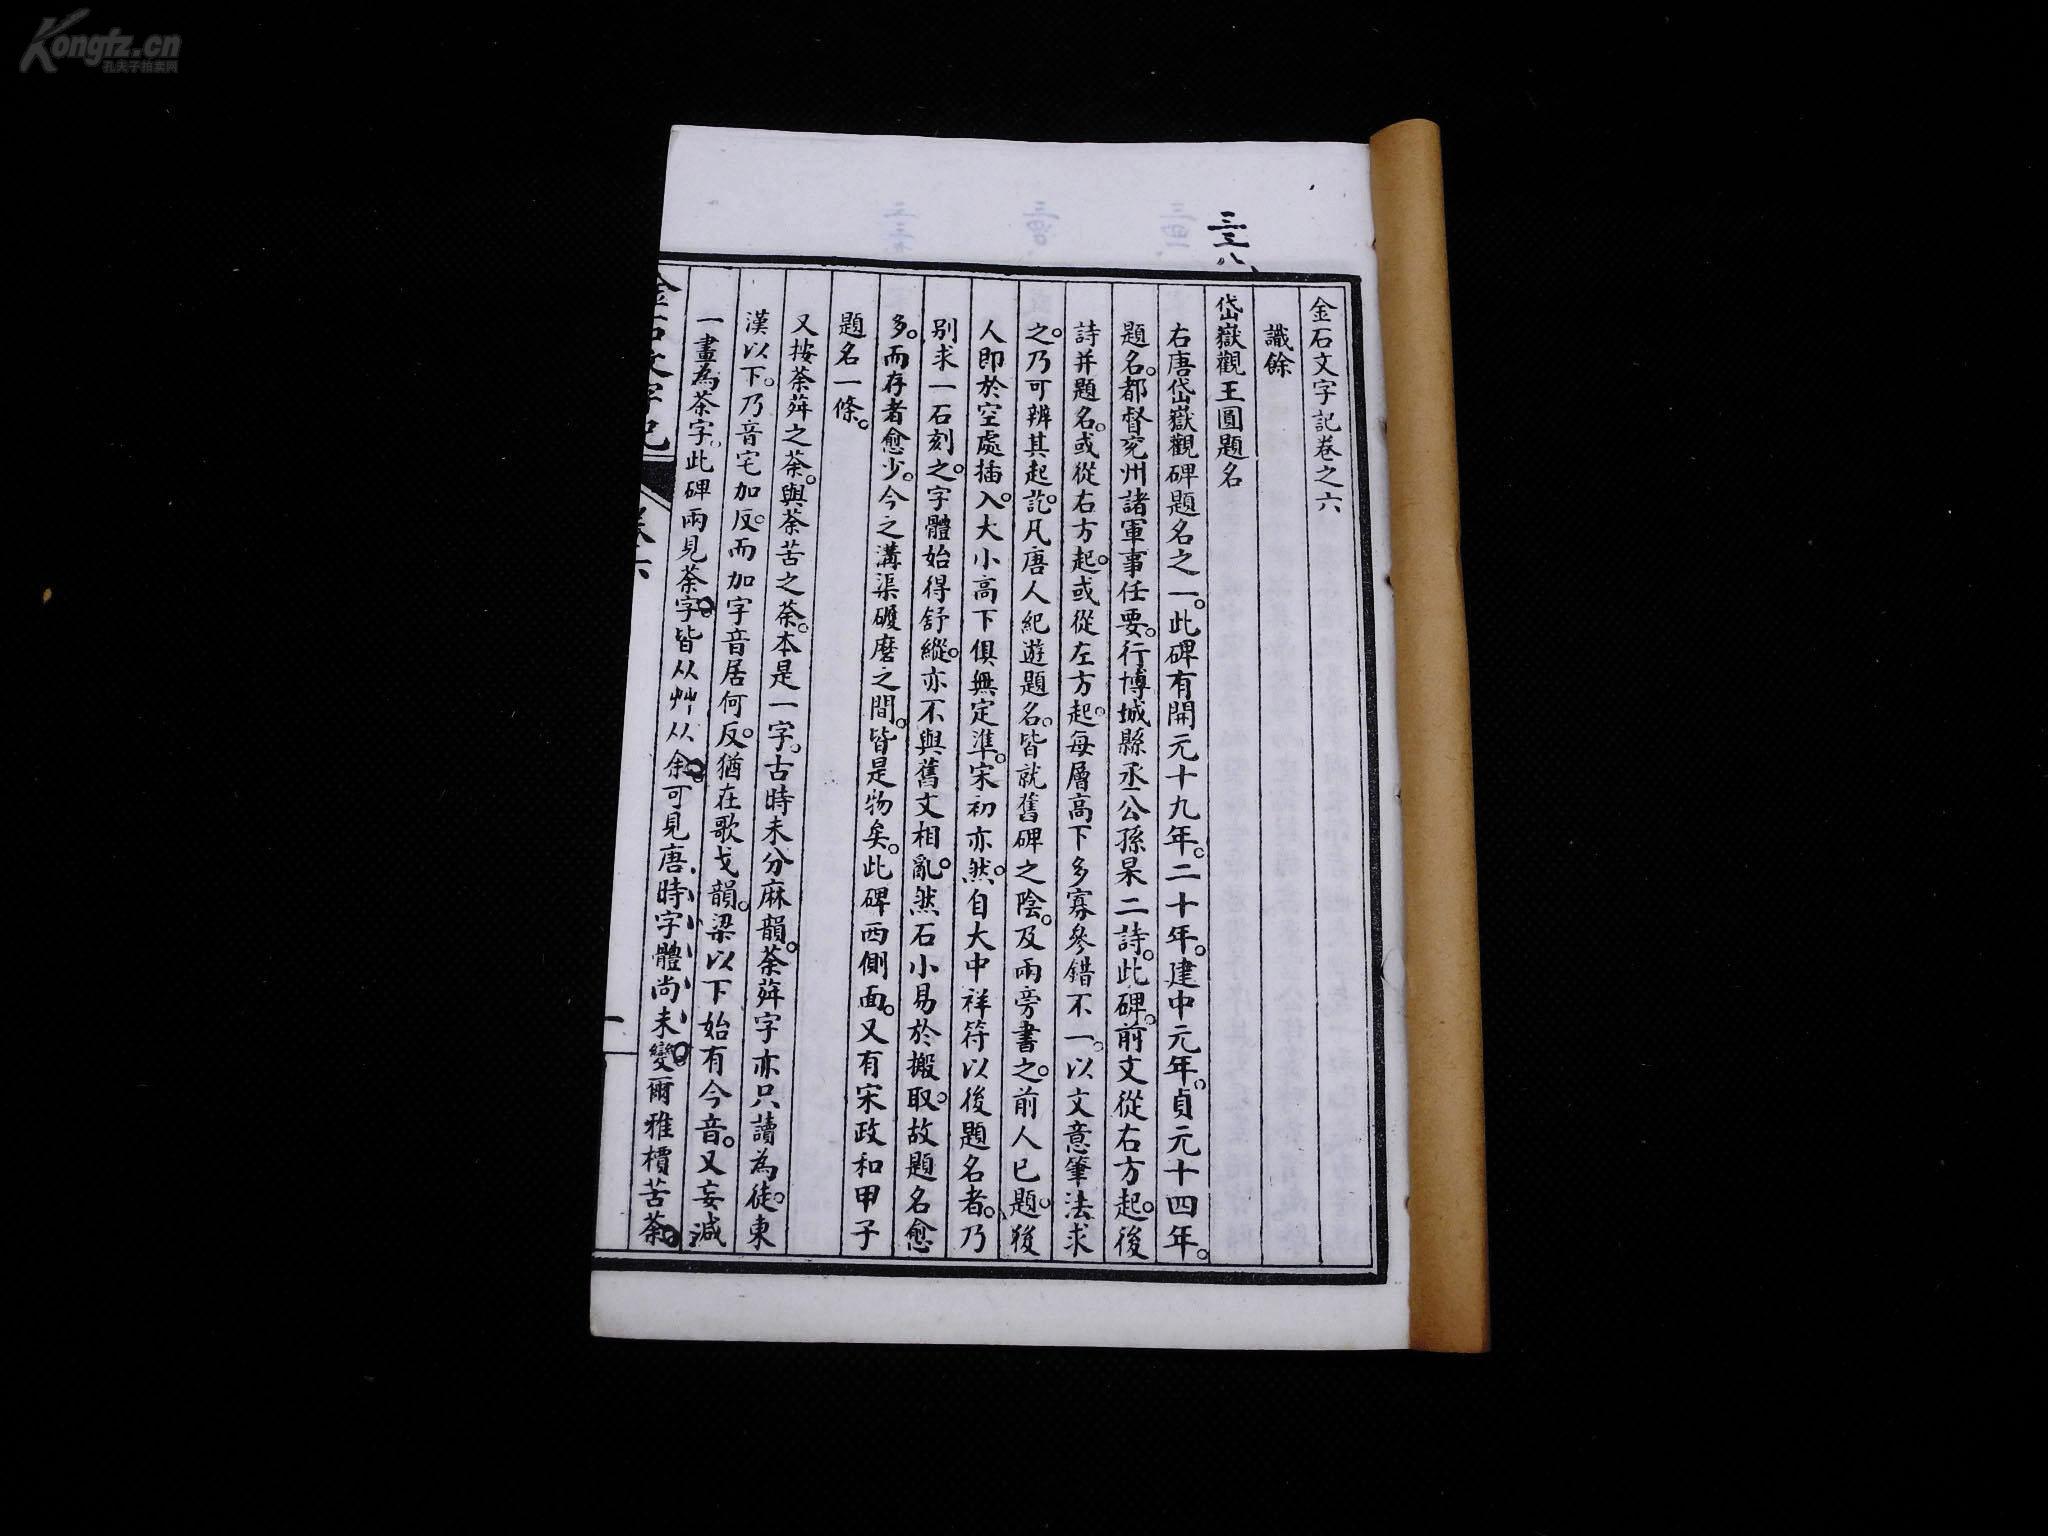 Kongfz.cn
孔夫子拍卖网
三三八
金石文字記卷之六
識餘
岱嶽觀王圓題名
右唐岱嶽觀碑題名之一。此碑有開元十九年。二十年。建中元年。貞元十四年。
題名。都督兖州諸軍事任要。行博城縣丞公孫杲二詩。此碑。前文從右方起。後
詩并題名。或從右方起。或從左方起。每層高下多寡參錯不一。以文意筆法求
之。乃可辨其起訖。凡唐人紀遊題名。皆就舊碑之陰。及兩旁書之。前人已題。後
人即於空處插入。大小高下俱無定準。宋初亦然。自大中祥符以後題名者。乃
別求一石刻之。字體始得舒縱。亦不與舊文相亂。然石小易於搬取。故題名愈
多。而存者愈少。今之溝渠礓磨之間。皆是物矣。此碑西側面。又有宋政和甲子
題名一條。
又按荼荈之荼。與荼苦之荼。本是一字。古時未分麻韻。荼荈字亦只讀為徒。東
漢以下。乃音宅加反。而加字音居何反。猶在歌戈韻。梁以下始有今音。又妄減
一畫為茶字。此碑兩見荼字。皆从艸从余。可見唐時字體尚未變。爾雅檟苦荼。
金石文字記 卷六 一